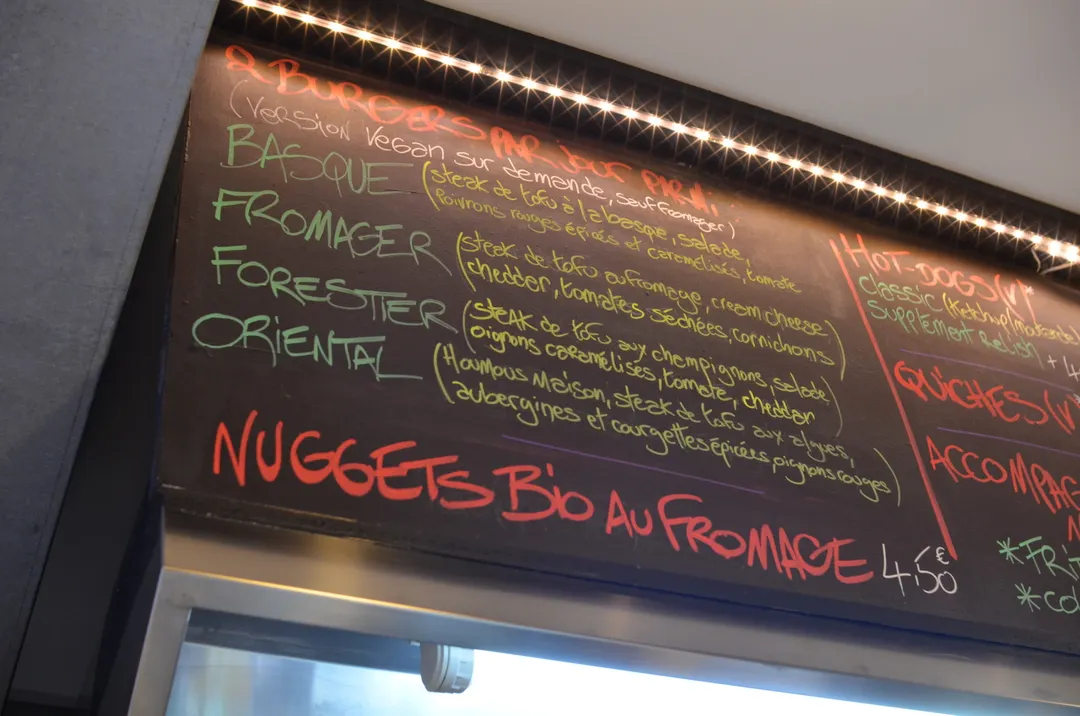 2 BURGERS PAR JOUR PARMI
(VERSION VEGAN SUR demande, sauf Fromager)
BASQUE (steak de tofu à la basque, salade,
Poivrons rouges épicés et caramélisés, tomate
FROMAGER (steak de tofu au fromage, cream cheese,
cheddar, tomates séchées, cornichons)
FORESTIER (STEAK de TOFU aux champignons, salade,
oignons caramélisés, tomate, cheddar)
ORIENTAL (Houmous Maison, steak de tofu aux algues,
aubergines et courgettes épicées, oignons rouges)
NUGGETS Bio Au FROMAGE 4,50€
HOT-DOGS (V)*
Classic (Ketchup/moutarde
Supplément relish +
QUICHES (V)*
ACCOMPAG
*FRIT
*Col